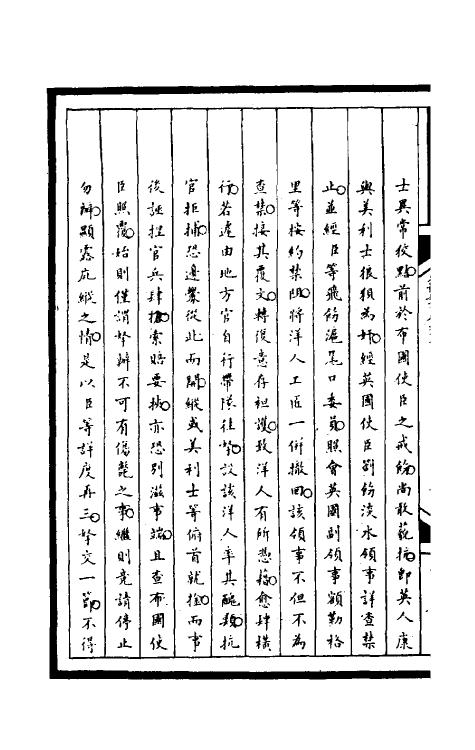 士異常狡黠前於布國使臣之戒飭尚敢藐抗即英人康
與美利士狼狽為奸經英國使臣劄飭淡水領事詳查禁
止並經臣等飛飭滬尾口委員照會英國副領事額勒格
里等按約禁阻將洋人工匠一併撤回該領事不但不為
查禁接其覆文轉復意存袒護致洋人有所憑藉愈肆橫
行若遽由地方官自行帶隊往拏設該洋人率其醜類抗
官拒捕恐邊釁從此而開縱或美利士等俯首就拴而事
後誣捏官兵肆搶索賠要挾亦恐別滋事端且查布國使
臣照覆始則僅謂拏辦不可有傷斃之事繼則竟請停止
勿辦顯露庇縱之情是以臣等詳度再三拏交一節不得